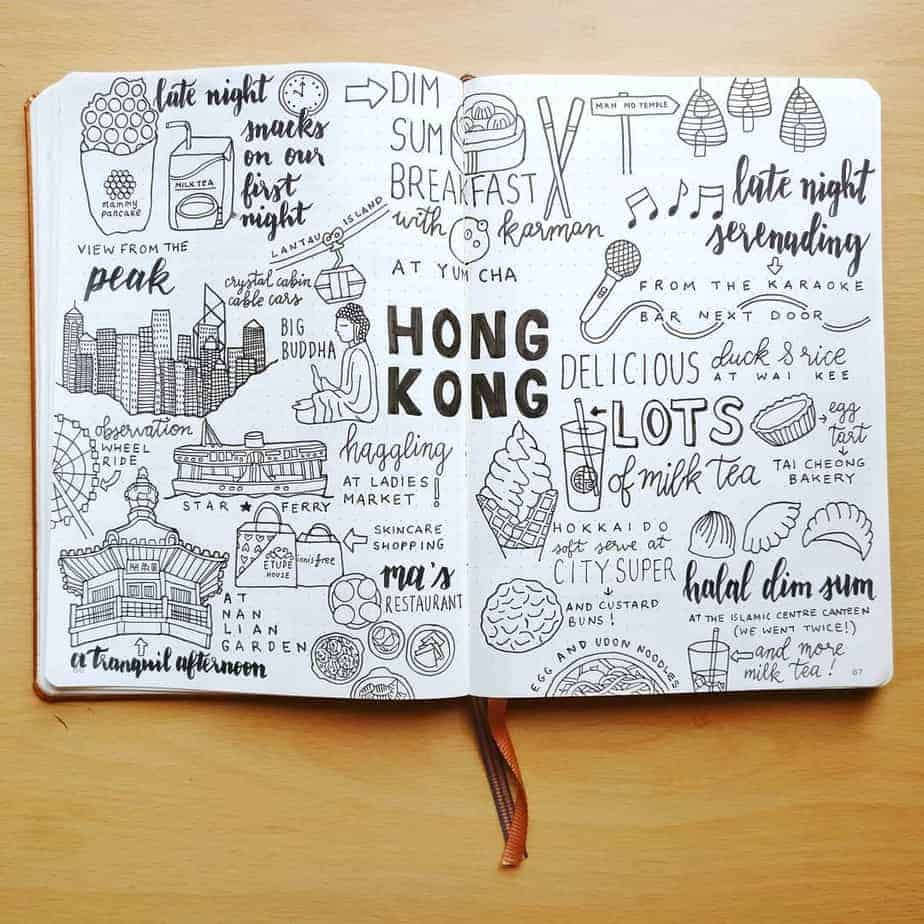 late night
snacks
on our
first
night
mammy
pancake
MILK TEA
DIM
SUM
BREAKFAST
with karman
AT YUM CHA
MAN MO TEMPLE
late night
serenading
FROM THE KARAOKE
BAR NEXT DOOR
VIEW FROM THE
peak
LANTAU ISLAND
crystal cabin
cable cars
BIG
BUDDHA
HONG
KONG
DELICIOUS duck & rice
AT WAI KEE
LOTS
of milk tea
egg
tart
TAI CHEONG
BAKERY
observation
WHEEL
RIDE
STAR ★ FERRY
haggling
AT LADIES
MARKET !
SKINCARE
SHOPPING
ETUDE
HOUSE
innisfree
ma's
RESTAURANT
AT
NAN
LIAN
GARDEN
a tranquil afternoon
HOKKAIDO
soft serve at
CITY SUPER
AND CUSTARD
BUNS !
EGG AND UDON NOODLES
halal dim sum
AT THE ISLAMIC CENTRE CANTEEN
(WE WENT TWICE!)
and more
milk tea !
67